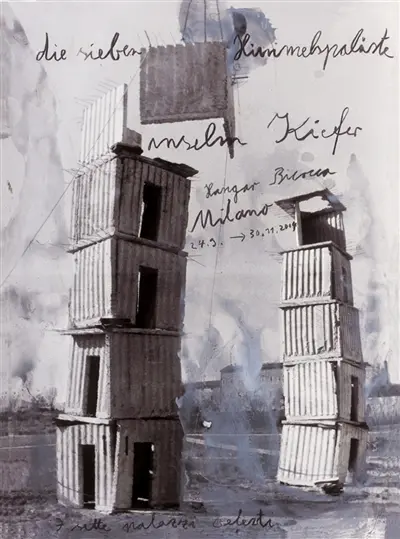 die sieben Himmelspaläste
anselm Kiefer
Hangar Bicocca
Milano
24.9. → 30.11.2014
I sette palazzi celesti